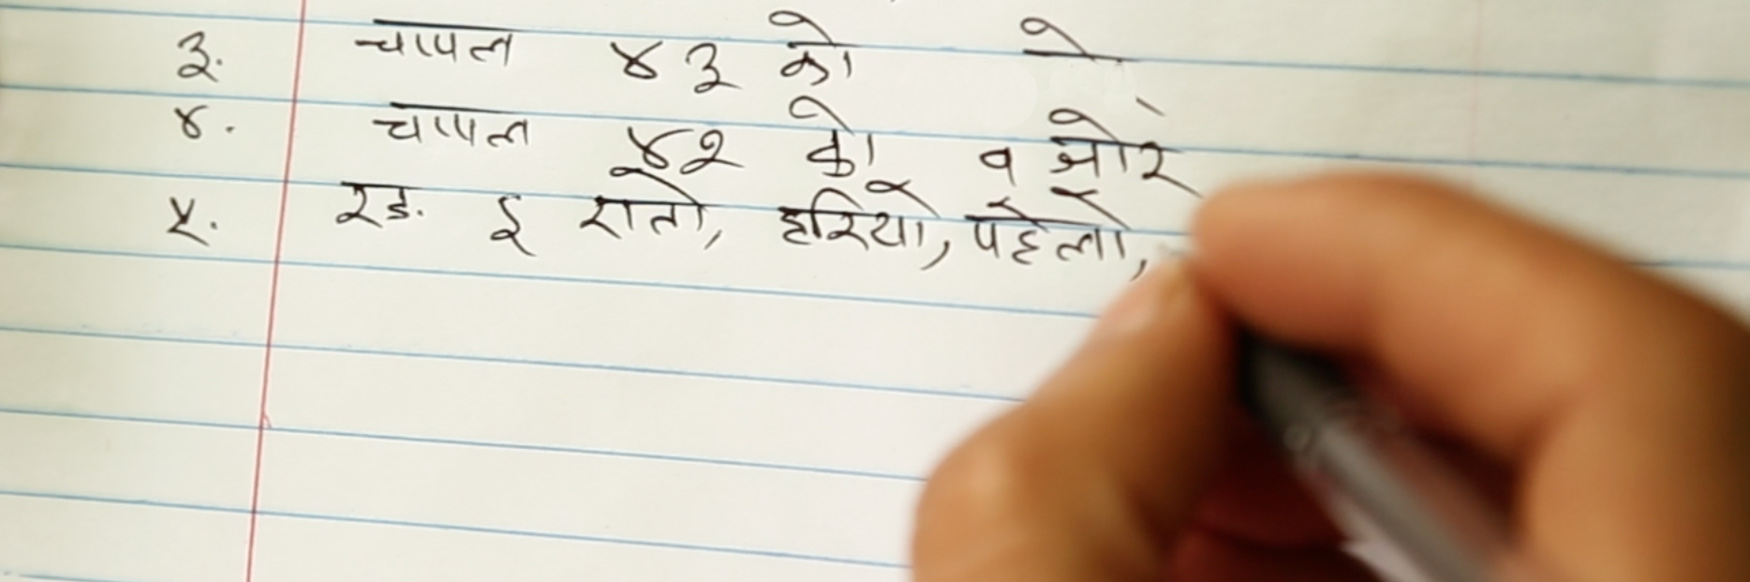 ३. चापल ४३ को
४. चापल ४२ को १ जोर
५. रङ ई रातो, हरियो, पहेलो,